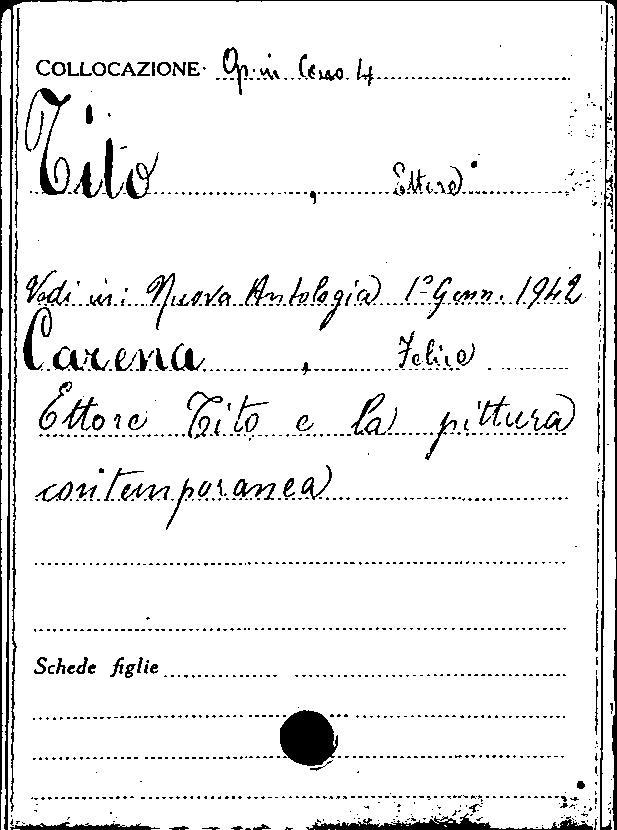 COLLOCAZIONE Op. in Caso 4
Tito, Ettore
Vedi in: Nuova Antologia 1° Genn. 1942
Carena, Felice
Ettore Tito e la pittura
contemporanea
Schede figlie